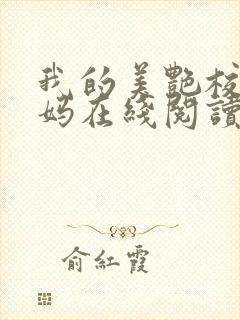 我的美艷校
媽在綫閱讀
俞紅霞